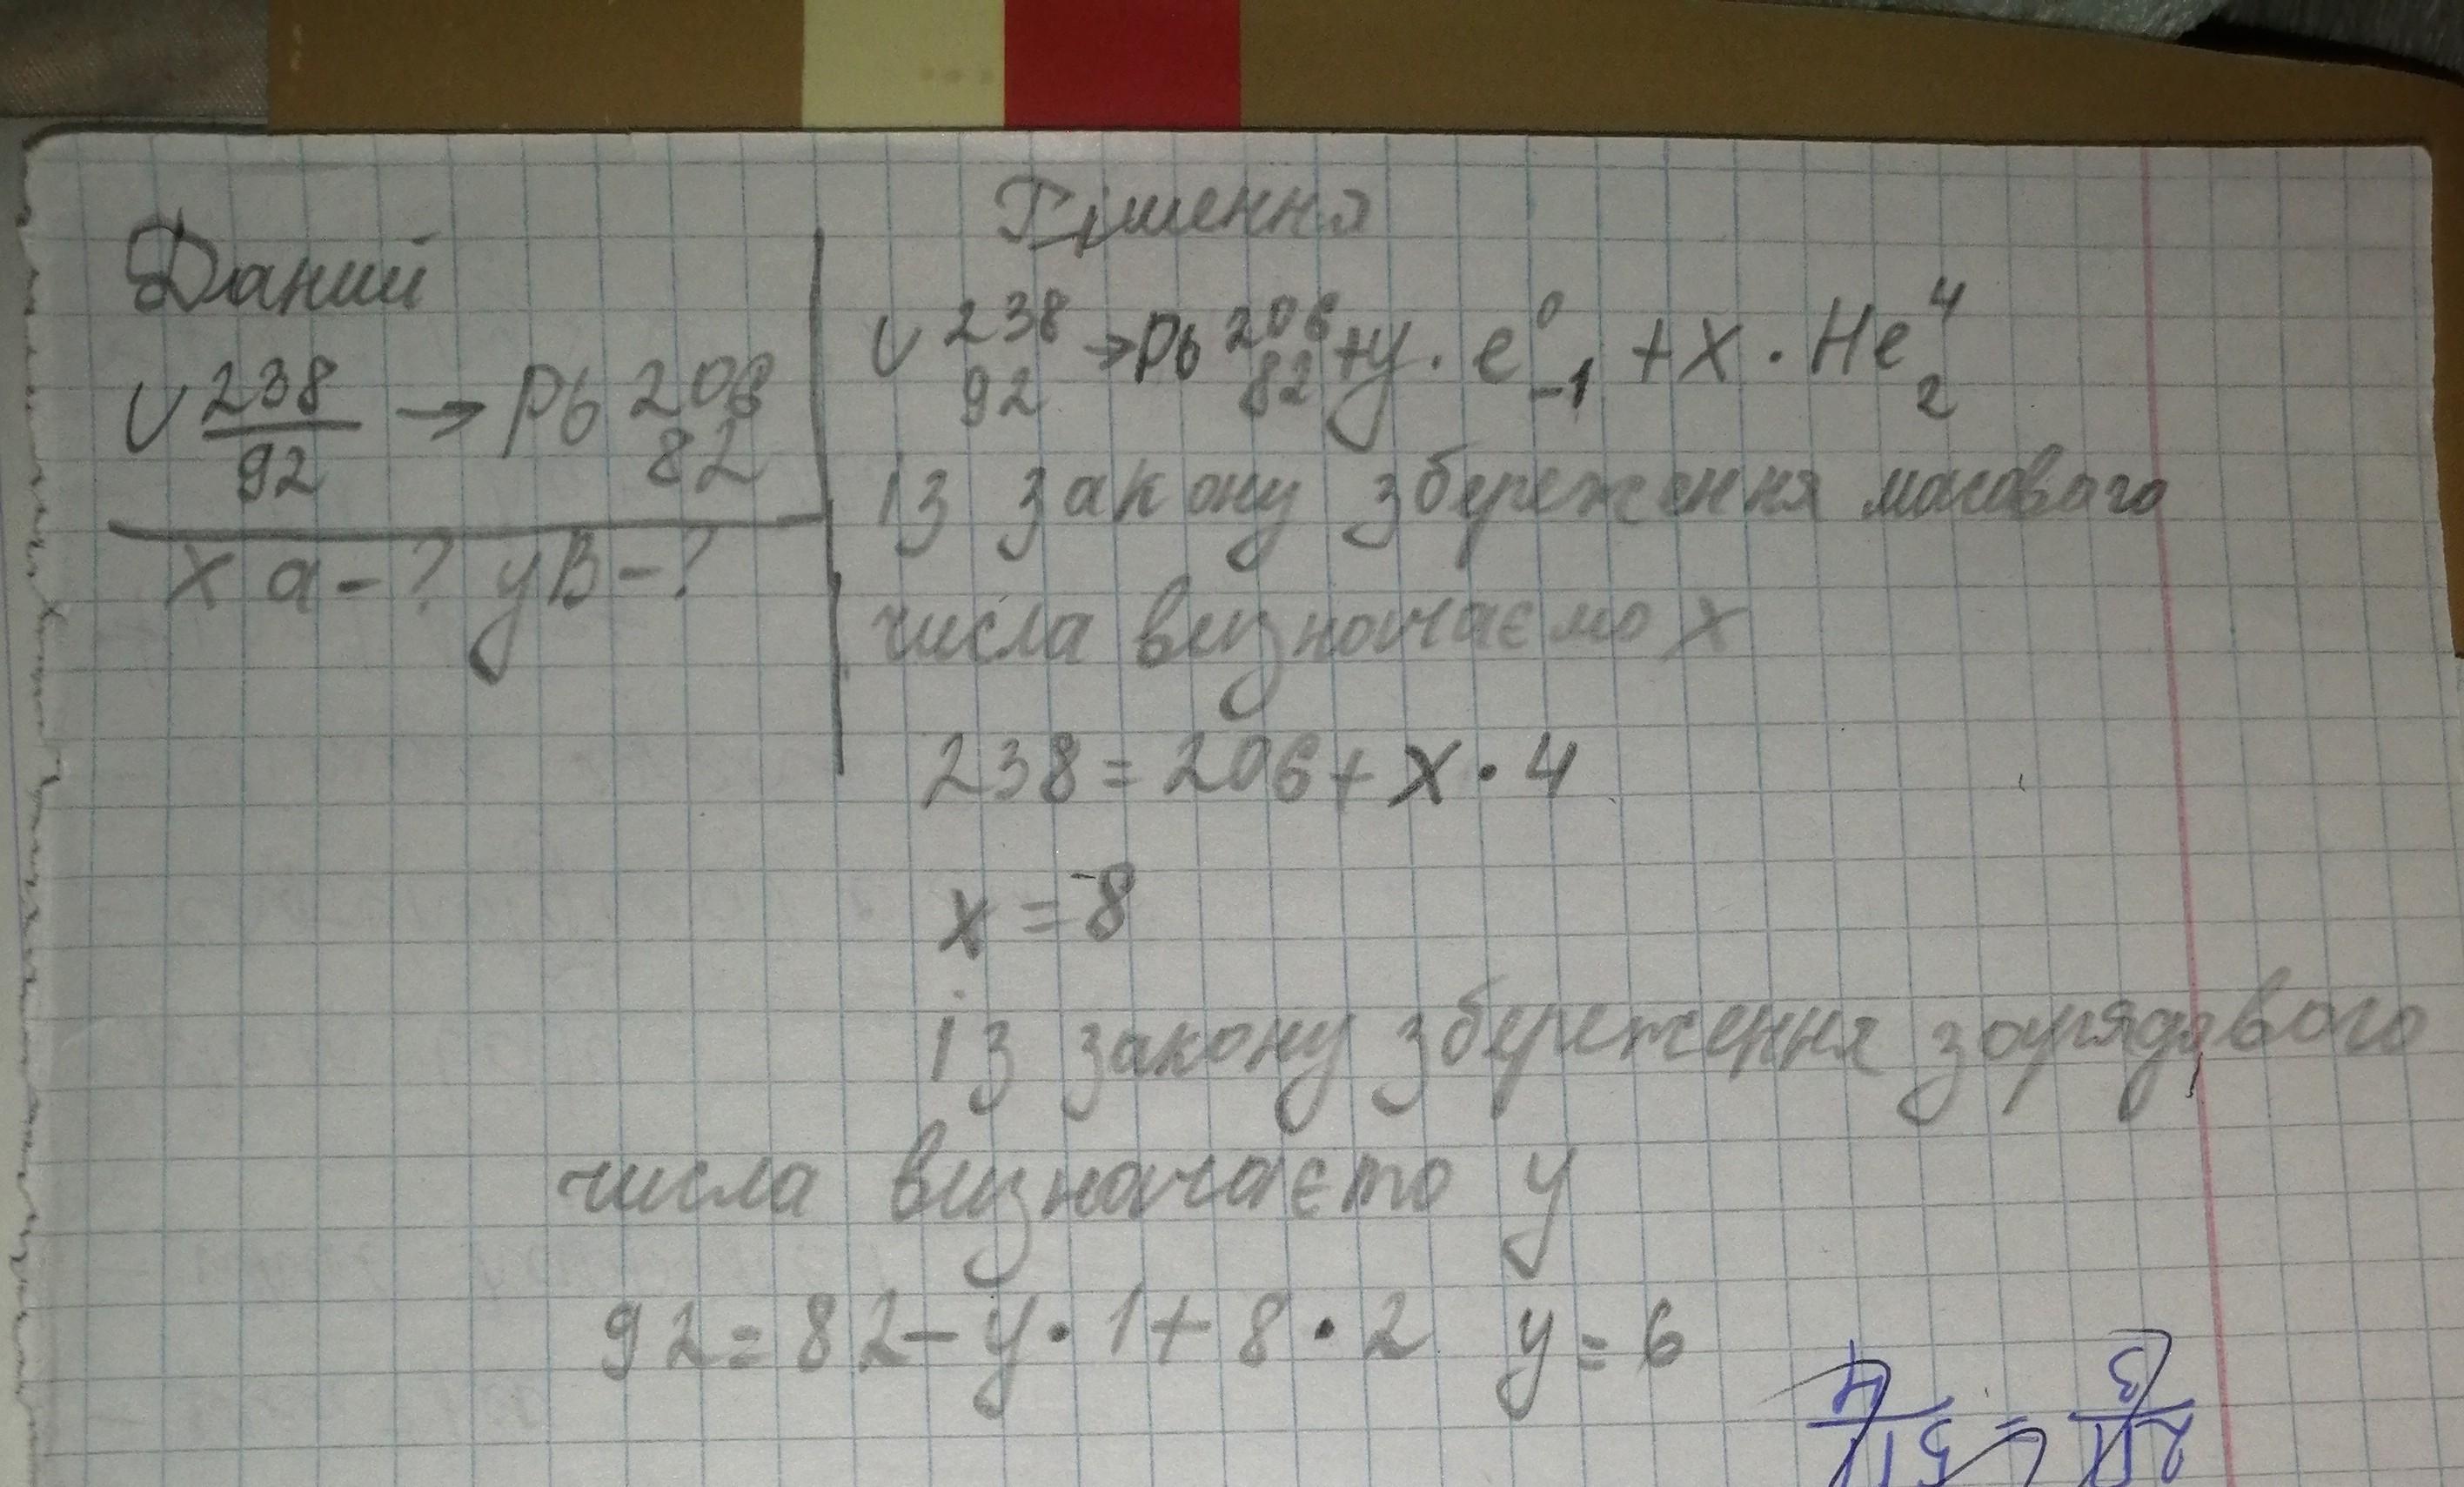 Рішення
Даний
U 238 92 → Pb 206 82
x α - ? yB - ?
U 238 92 → Pb 206 82 + y · e 0 -1 + x · He 4 2
із закону збереження масового
числа визначаємо x
238 = 206 + x · 4
x = 8
із закону збереження зарядового
числа визначаємо y
92 = 82 - y · 1 + 8 · 2 y = 6